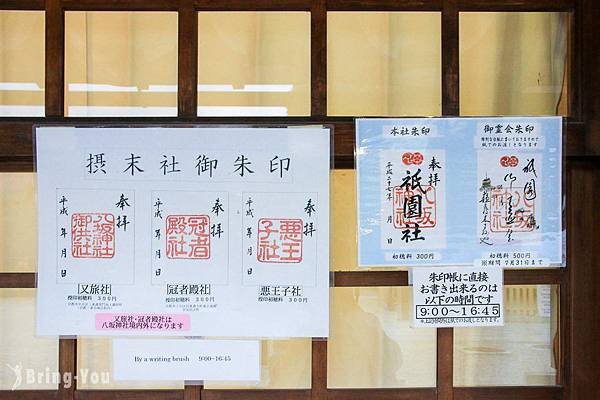 摂末社御朱印
奉拝
八坂神社
御旅社
平成 年 月 日
奉拝
冠者
殿社
平成 年 月 日
奉拝
悪王
子社
平成 年 月 日
[又旅社]
授印初穂料 300円
[冠者殿社]
授印初穂料 300円
[悪王子社]
授印初穂料 300円
又旅社・冠者殿社は
八坂神社境内外になります
By a writing brush 9:00~16:45
本社朱印
奉拝
祇園社
平成二十七年 月 日
初穂料 300円
御霊会朱印
紙でのお渡しとなります
祇園
初穂料 500円
※期間 7月31日まで
朱印帳に直接
お書き出来るのは
以下の時間です
9:00~16:45
Bring-You